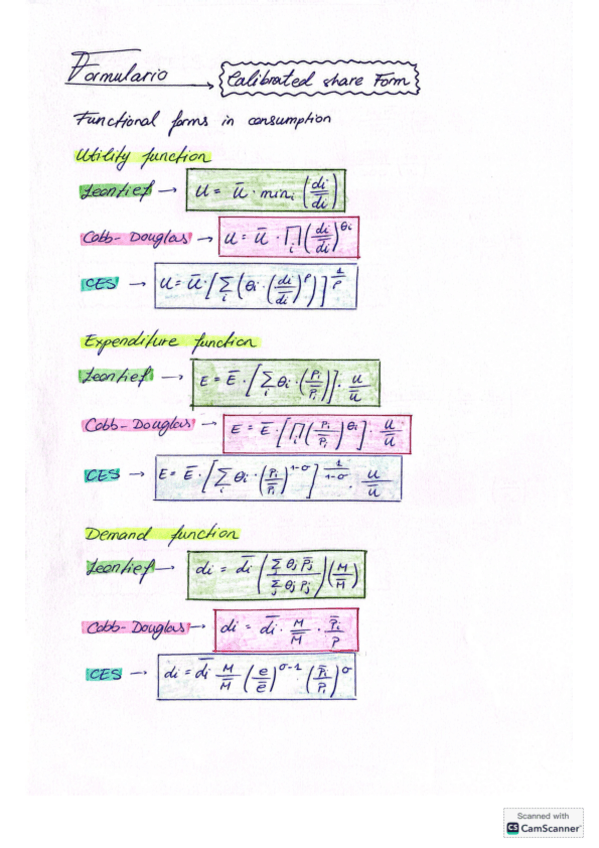 Formulario → Calibrated share Form
Functional forms in consumption
Utility function
Leontief → U = U̅ · min_i (di/d̅i)
Cobb-Douglas → U = U̅ · ∏_i (di/d̅i)^θi
CES → U = U̅ · [∑_i (θi · (di/d̅i)^ρ)]^(1/ρ)
Expenditure function
Leontief → E = E̅ · [∑_i θi · (Pi/P̅i)] · u/u̅
Cobb-Douglas → E = E̅ · [∏_i (Pi/P̅i)^θi] · u/u̅
CES → E = E̅ · [∑_i θi · (Pi/P̅i)^(1-σ)]^(1/(1-σ)) · u/u̅
Demand function
Leontief → di = d̅i (∑_j θj P̅j / ∑_j θj Pj) (M/M̅)
Cobb-Douglas → di = d̅i · M/M̅ · P̅i/P
CES → di = d̅i M/M̅ (e/e̅)^(σ-1) · (P̅i/Pi)^σ
Scanned with
CS CamScanner